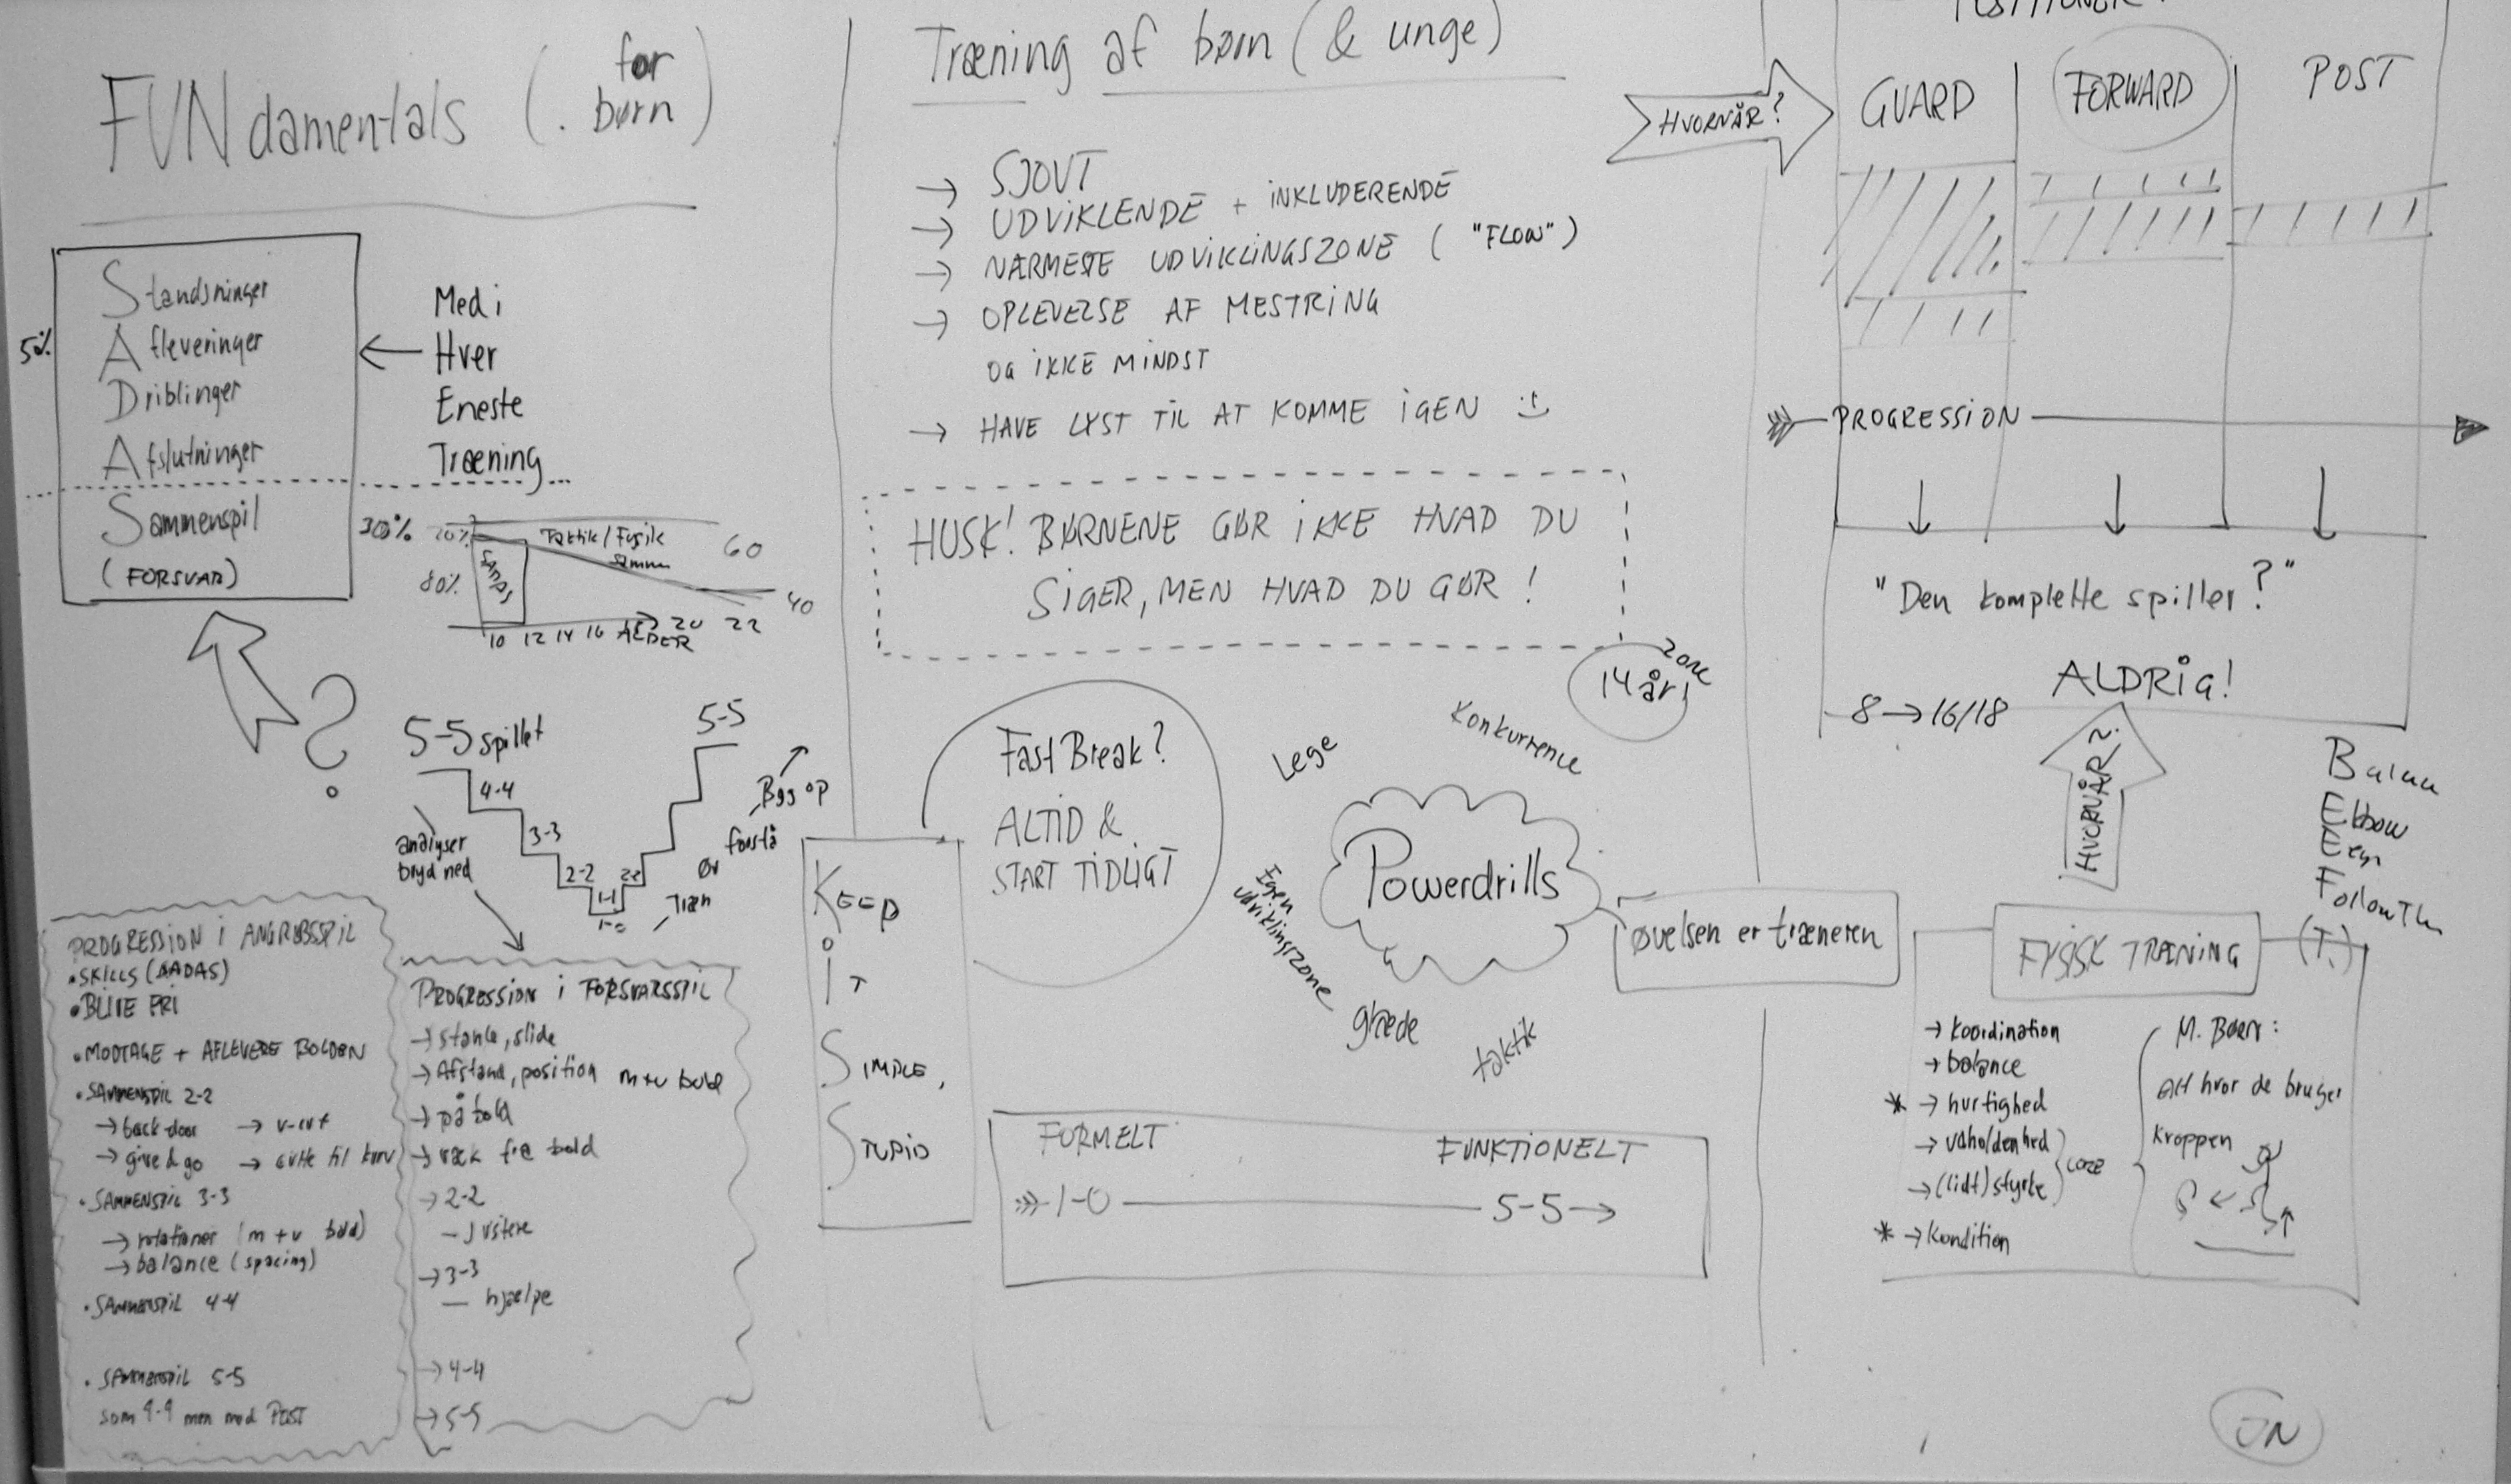 FUNdamentals (for børn)
Standsninger
Afleveringer
Driblinger
Afslutninger
Sammenspil
(FORSVAR)
50%
Med i
Hver
Eneste
Træning...
30%
20%
80%
SADAS
Taktik/Fysik
Samm
60
40
10 12 14 16 18 20 22
ALDER
?
5-5 spillet
4-4
3-3
2-2
1-1
1-0
2-2
5-5
analyser
bryd ned
Byg op
forstå
Øv
Træn
PROGRESSION I ANGREBSSPIL
• SKILLS (SADAS)
• BLIVE FRI
• MODTAGE + AFLEVERE BOLDEN
• SAMMENSPIL 2-2
→ back-door → v-cut
→ give & go → cutte til kurv
• SAMMENSPIL 3-3
→ rotationer (m + u bold)
→ balance (spacing)
• SAMMENSPIL 4-4
• SAMMENSPIL 5-5
som 4-4 men med POST
PROGRESSION i FORSVARSSPIL
→ stance, slide
→ Afstand, position m+u bold
→ på bold
→ væk fra bold
→ 2-2
– Justere
→ 3-3
— hjælpe
→ 4-4
→ 5-5
Træning af børn (& unge)
→ SJOVT
→ UDVIKLENDE + INKLUDERENDE
→ NÆRMESTE UDVIKLINGSZONE ("FLOW")
→ OPLEVELSE AF MESTRING
OG IKKE MINDST
→ HAVE LYST TIL AT KOMME IGEN
HUSK! BØRNENE GØR IKKE HVAD DU
SIGER, MEN HVAD DU GØR!
Fast Break?
ALTID &
START TIDLIGT
KEEP
IT
SIMPLE,
STUPID
Zone
14 år!
Lege
Konkurrence
Powerdrills
Egen
udviklingszone
glæde
taktik
Øvelsen er træneren
FORMELT
FUNKTIONELT
1-0
5-5 →
POSITIONER
HVORNÅR?
GUARD
FORWARD
POST
PROGRESSION
"Den komplette spiller?"
ALDRIG!
8 → 16/18
HVORNÅR?
Balance
Elbow
Eyes
Follow Th
(T.)
FYSISK TRÆNING
→ koordination
→ balance
* → hurtighed
→ udholdenhed
→ (lidt) styrke
CORE
* → kondition
M. Børn:
Alt hvor de bruger
kroppen
JN